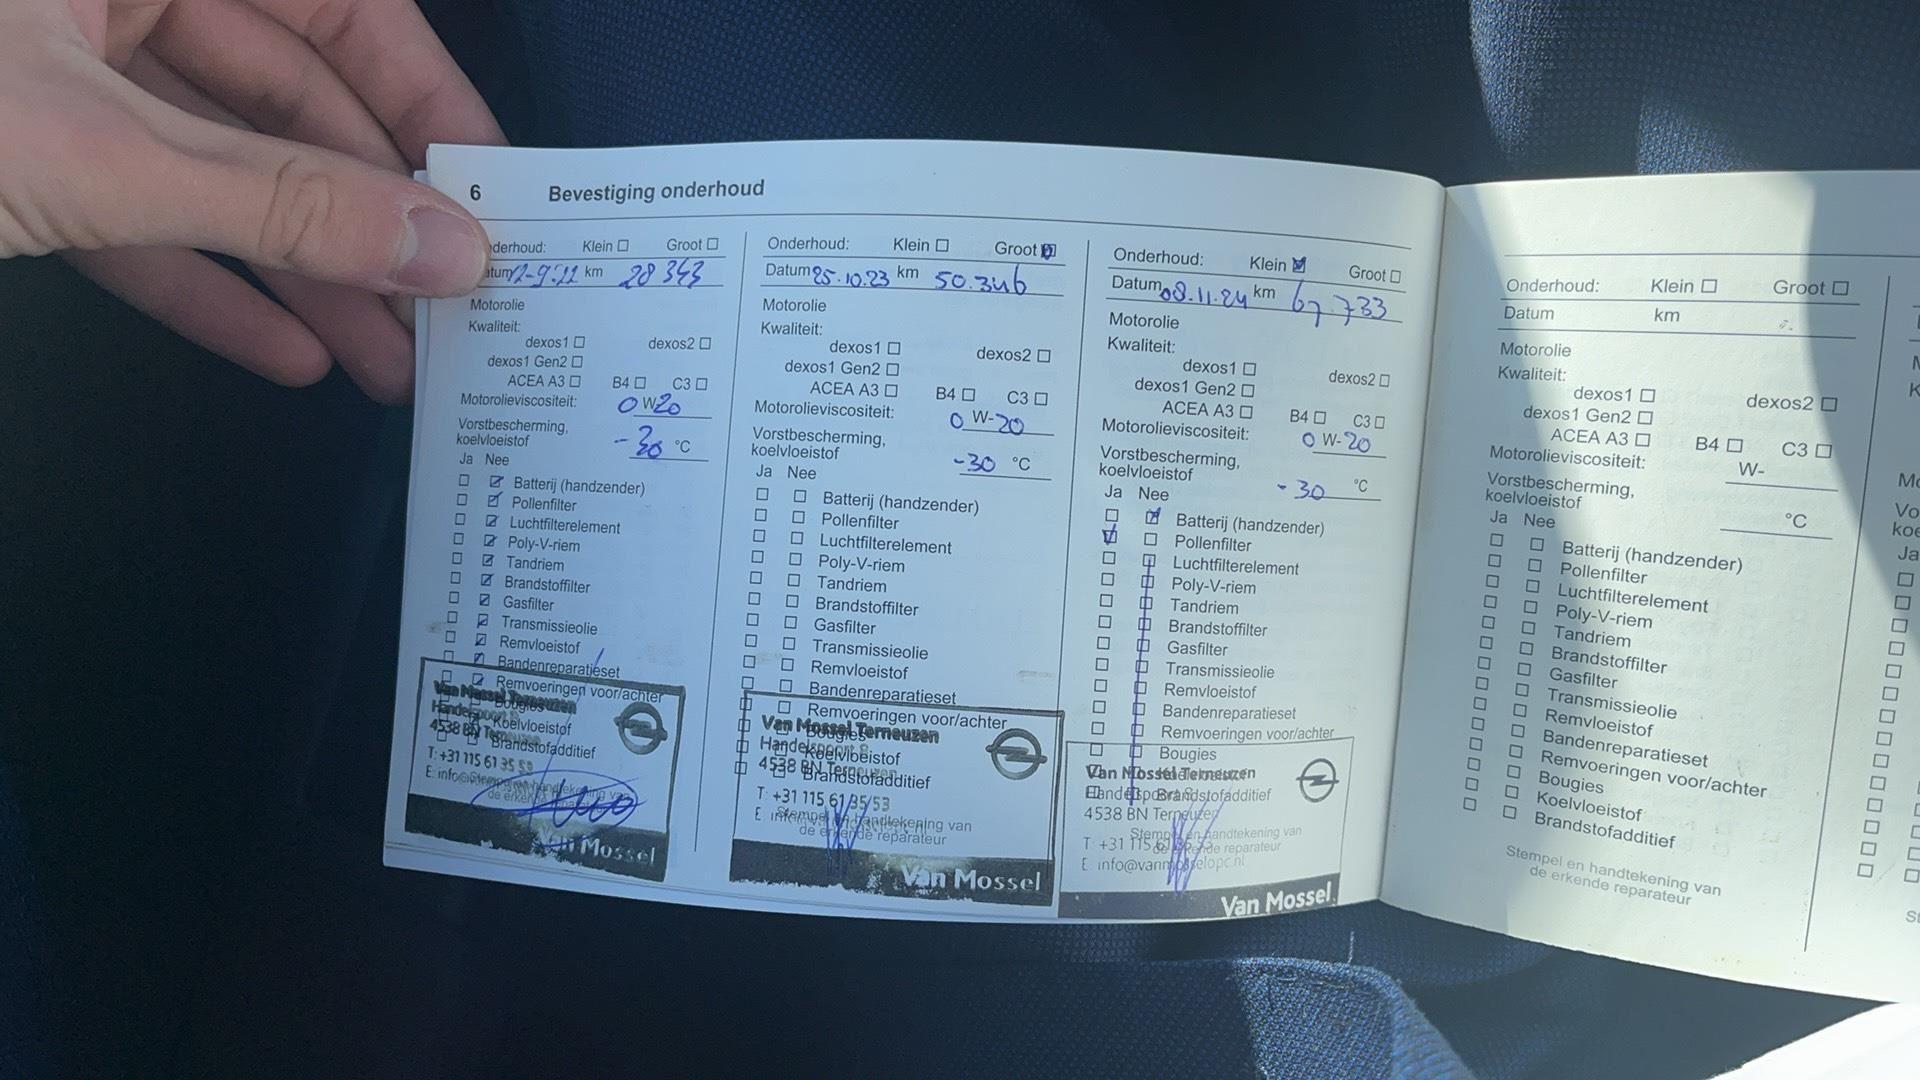 6 Bevestiging onderhoud
derhoud: Klein Groot
atum 12-9-22 km 28 343
Motorolie
Kwaliteit:
dexos1 dexos2
dexos1 Gen2
ACEA A3 B4 C3
Motorolieviscositeit: 0 W20
Vorstbescherming,
koelvloeistof -30 °C
Ja Nee
Batterij (handzender)
Pollenfilter
Luchtfilterelement
Poly-V-riem
Tandriem
Brandstoffilter
Gasfilter
Transmissieolie
Remvloeistof
Bandenreparatieset
Remvoeringen voor/achter
Bougies
Koelvloeistof
Brandstofadditief
Stempel en handtekening van
de erkende reparateur
Van Mossel Terneuzen
Handelspoort 8
4538 BN Terneuzen
T: +31 115 61 35 53
Van Mossel
Onderhoud: Klein Groot
Datum 25.10.23 km 50.346
Motorolie
Kwaliteit:
dexos1 dexos2
dexos1 Gen2
ACEA A3 B4 C3
Motorolieviscositeit: 0 W-20
Vorstbescherming,
koelvloeistof -30 °C
Ja Nee
Batterij (handzender)
Pollenfilter
Luchtfilterelement
Poly-V-riem
Tandriem
Brandstoffilter
Gasfilter
Transmissieolie
Remvloeistof
Bandenreparatieset
Remvoeringen voor/achter
Bougies
Koelvloeistof
Brandstofadditief
Stempel en handtekening van
de erkende reparateur
Van Mossel Terneuzen
Handelspoort 8
4538 BN Terneuzen
T: +31 115 61 35 53
Van Mossel
Onderhoud: Klein Groot
Datum 08.11.24 km 67.733
Motorolie
Kwaliteit:
dexos1 dexos2
dexos1 Gen2
ACEA A3 B4 C3
Motorolieviscositeit: 0 W-20
Vorstbescherming,
koelvloeistof -30 °C
Ja Nee
Batterij (handzender)
Pollenfilter
Luchtfilterelement
Poly-V-riem
Tandriem
Brandstoffilter
Gasfilter
Transmissieolie
Remvloeistof
Bandenreparatieset
Remvoeringen voor/achter
Bougies
Koelvloeistof
Brandstofadditief
Stempel en handtekening van
de erkende reparateur
Van Mossel Terneuzen
Handelspoort
4538 BN Terneuzen
T: +31 115 61 35 53
E: info@vanmosselopc.nl
Van Mossel
Onderhoud: Klein Groot
Datum km
Motorolie
Kwaliteit:
dexos1 dexos2
dexos1 Gen2
ACEA A3 B4 C3
Motorolieviscositeit: W-
Vorstbescherming,
koelvloeistof °C
Ja Nee
Batterij (handzender)
Pollenfilter
Luchtfilterelement
Poly-V-riem
Tandriem
Brandstoffilter
Gasfilter
Transmissieolie
Remvloeistof
Bandenreparatieset
Remvoeringen voor/achter
Bougies
Koelvloeistof
Brandstofadditief
Stempel en handtekening van
de erkende reparateur